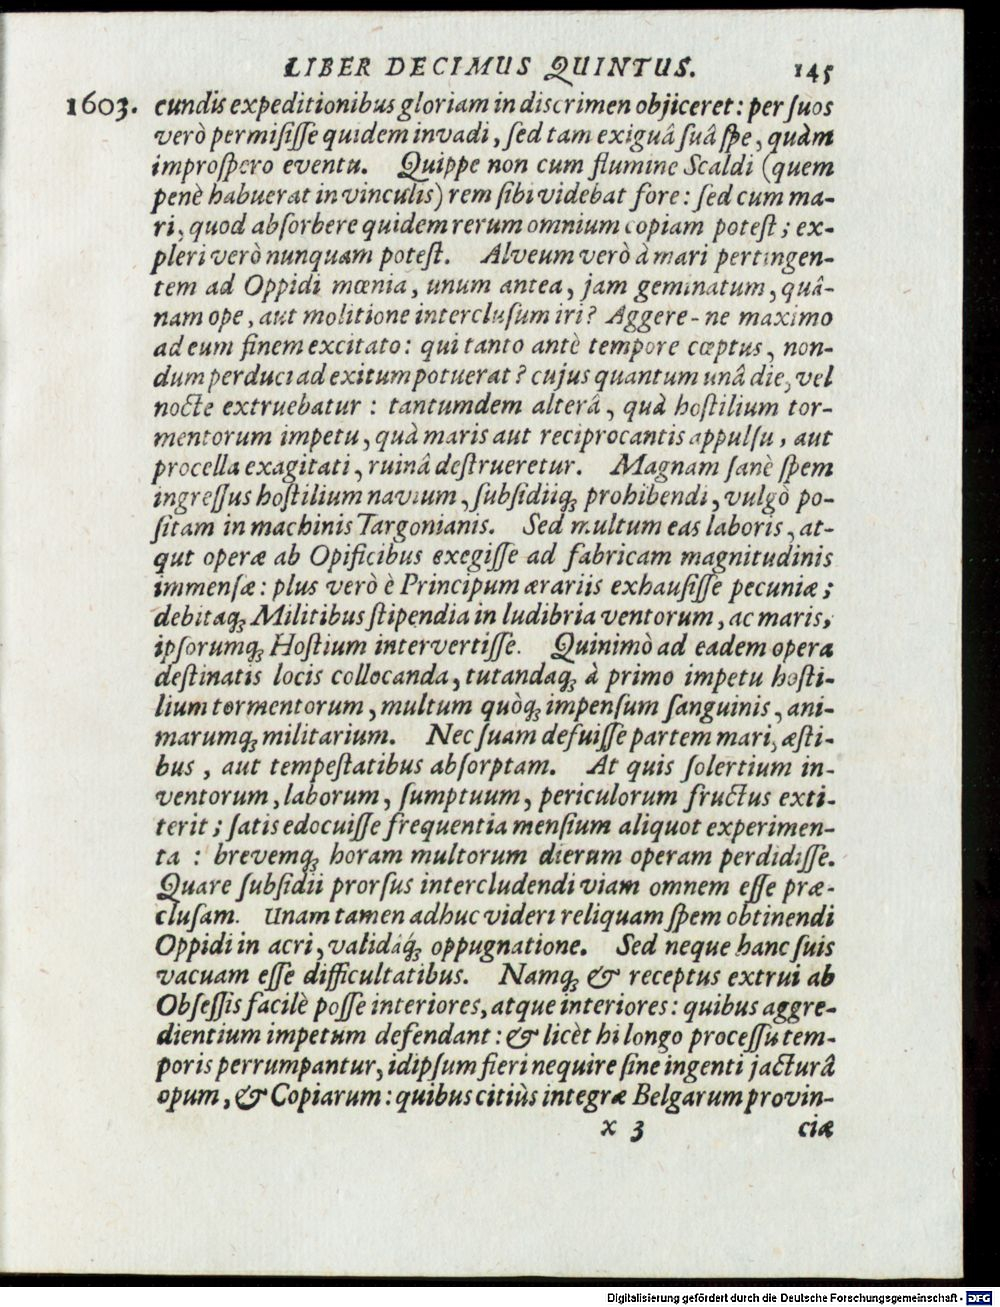 LIBER DECIMUS QUINTUS. 145
1603. cundis expeditionibus gloriam in discrimen objiceret: per ſuos
verò permiſiſſe quidem invadi, ſed tam exiguâ ſuâ ſpe, quàm
improſpero eventu. Quippe non cum flumine Scaldi (quem
penè habuerat in vinculis) rem ſibi videbat fore: ſed cum ma-
ri, quod abſorbere quidem rerum omnium copiam poteſt; ex-
pleri verò nunquam poteſt. Alveum verò à mari pertingen-
tem ad Oppidi mœnia, unum antea, jam geminatum, quâ-
nam ope, aut molitione intercluſum iri? Aggere-ne maximo
ad eum finem excitato: qui tanto antè tempore cœptus, non-
dum perduci ad exitum potuerat? cujus quantum unâ die, vel
nocte extruebatur: tantumdem alterâ, quà hoſtilium tor-
mentorum impetu, quà maris aut reciprocantis appulſu, aut
procella exagitati, ruinâ deſtrueretur. Magnam ſanè ſpem
ingreſſus hoſtilium navium, ſubſidiiq́ꝫ prohibendi, vulgò po-
ſitam in machinis Targonianis. Sed multum eas laboris, at-
qut operæ ab Opificibus exegiſſe ad fabricam magnitudinis
immenſæ: plus verò è Principum ærariis exhauſiſſe pecuniæ;
debitaqꝫ Militibus ſtipendia in ludibria ventorum, ac maris,
ipſorumqꝫ Hoſtium intervertiſſe. Quinimò ad eadem opera
deſtinatis locis collocanda, tutandaqꝫ à primo impetu hoſti-
lium tormentorum, multum quòqꝫ impenſum ſanguinis, ani-
marumqꝫ militarium. Nec ſuam defuiſſe partem mari, æſti-
bus, aut tempeſtatibus abſorptam. At quis ſolertium in-
ventorum, laborum, ſumptuum, periculorum fructus exti-
terit; ſatis edocuiſſe frequentia menſium aliquot experimen-
ta : brevemqꝫ horam multorum dierum operam perdidiſſe.
Quare ſubſidii prorſus intercludendi viam omnem eſſe præ-
cluſam. Unam tamen adhuc videri reliquam ſpem obtinendi
Oppidi in acri, validáqꝫ oppugnatione. Sed neque hanc ſuis
vacuam eſſe difficultatibus. Namqꝫ & receptus extrui ab
Obſeſſis facilè poſſe interiores, atque interiores: quibus aggre-
dientium impetum defendant: & licèt hi longo proceſſu tem-
poris perrumpantur, idipſum fieri nequire ſine ingenti jacturâ
opum, & Copiarum: quibus citiùs integræ Belgarum provin-
x 3 ciæ
Digitalisierung gefördert durch die Deutsche Forschungsgemeinschaft - DFG